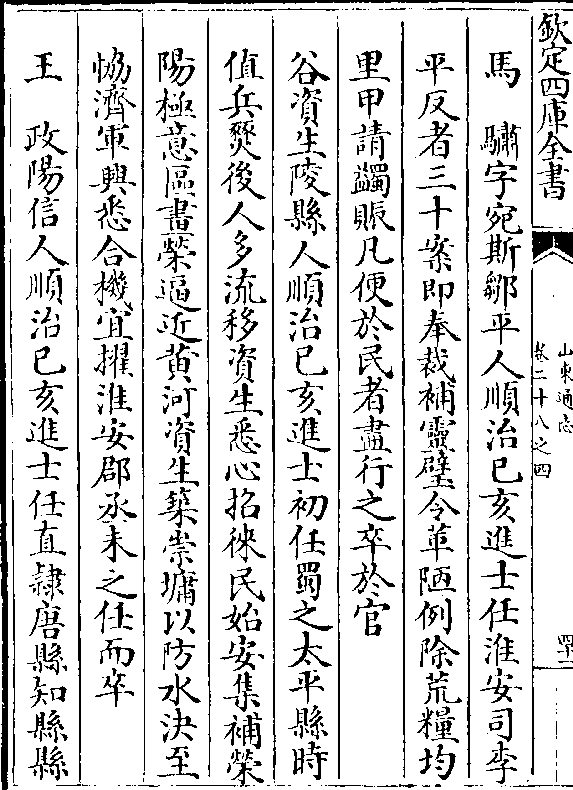 欽定四庫全書
山東通志
卷二十八之四
馬　驌字宛斯鄒平人順治己亥進士任淮安司李
平反者三十案即奉裁補靈璧令革陋例除荒糧均
里甲請蠲賑凡便於民者盡行之卒於官
谷資生陵縣人順治己亥進士初任蜀之太平縣時
值兵燹後人多流移資生悉心招徠民始安集補榮
陽極意區畫榮逼近黄河資生築崇墉以防水決至
恊濟軍興悉合機宜擢淮安郡丞未之任而卒
王　政陽信人順治己亥進士任直隸唐縣知縣縣